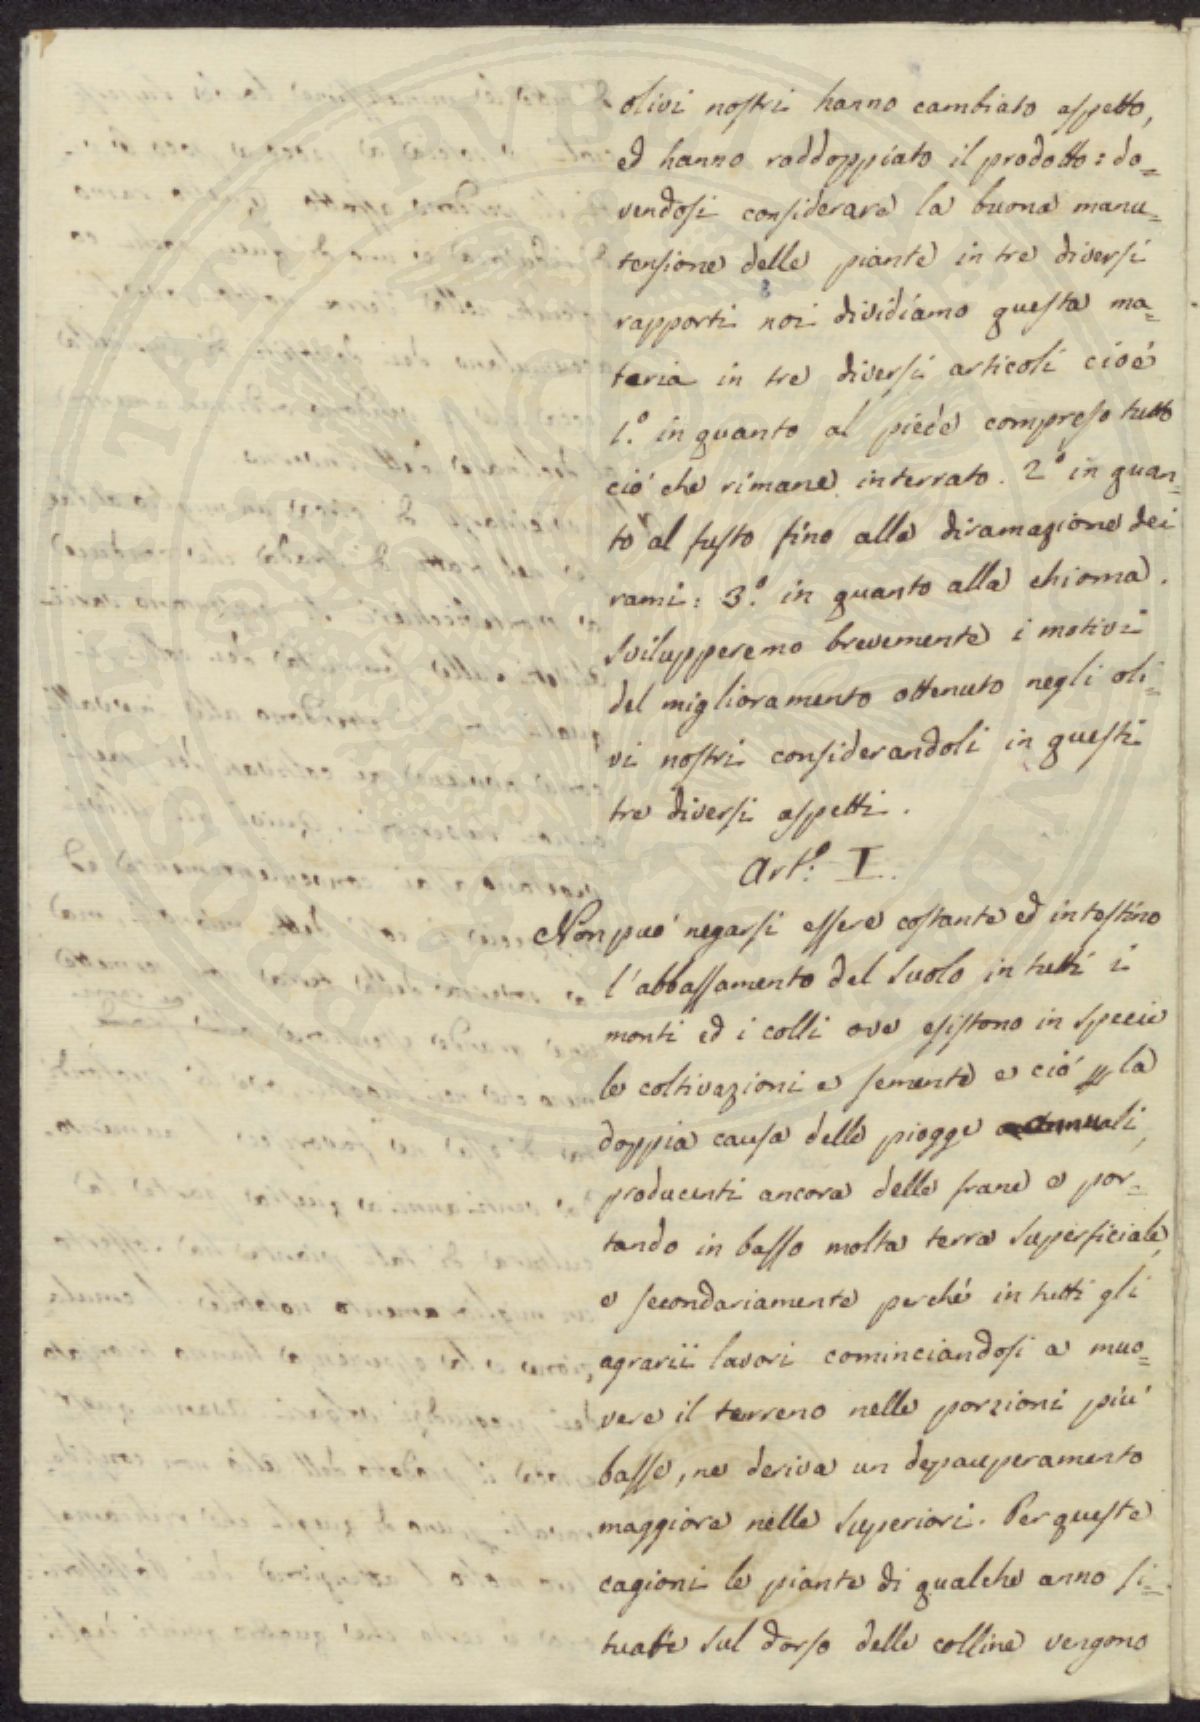 olivi nostri hanno cambiato aspetto,
ed hanno raddoppiato il prodotto: do=
vendosi considerare la buona manu=
tensione delle piante in tre diversi
rapporti noi dividiamo questa ma=
teria in tre diversi articoli cioé
1.º in quanto al piede compreso tutto
ció che rimane interrato. 2º in quan=
to al fusto fino alla diramazione dei
rami: 3.º in quanto alla chioma.
Svilupperemo brevemente i motivi
del miglioramento ottenuto negli oli=
vi nostri considerandoli in questi
tre diversi aspetti.
Art.º I.
Non puó negarsi essere costante ed intestino
l'abbassamento del suolo in tutti i
monti ed i colli ove esistono in specie
le coltivazioni a semente e ció p la
doppia causa delle piogge annuali,
producenti ancora delle frane e por=
tando in basso molta terra superficiale,
e secondariamente perché in tutti gli
agrarii lavori cominciandosi a muo=
vere il terreno nelle porzioni piú
basse, ne deriva un depauperamento
maggiore nelle superiori. Per queste
cagioni le piante di qualche anno si=
tuate sul dorso delle colline vengono